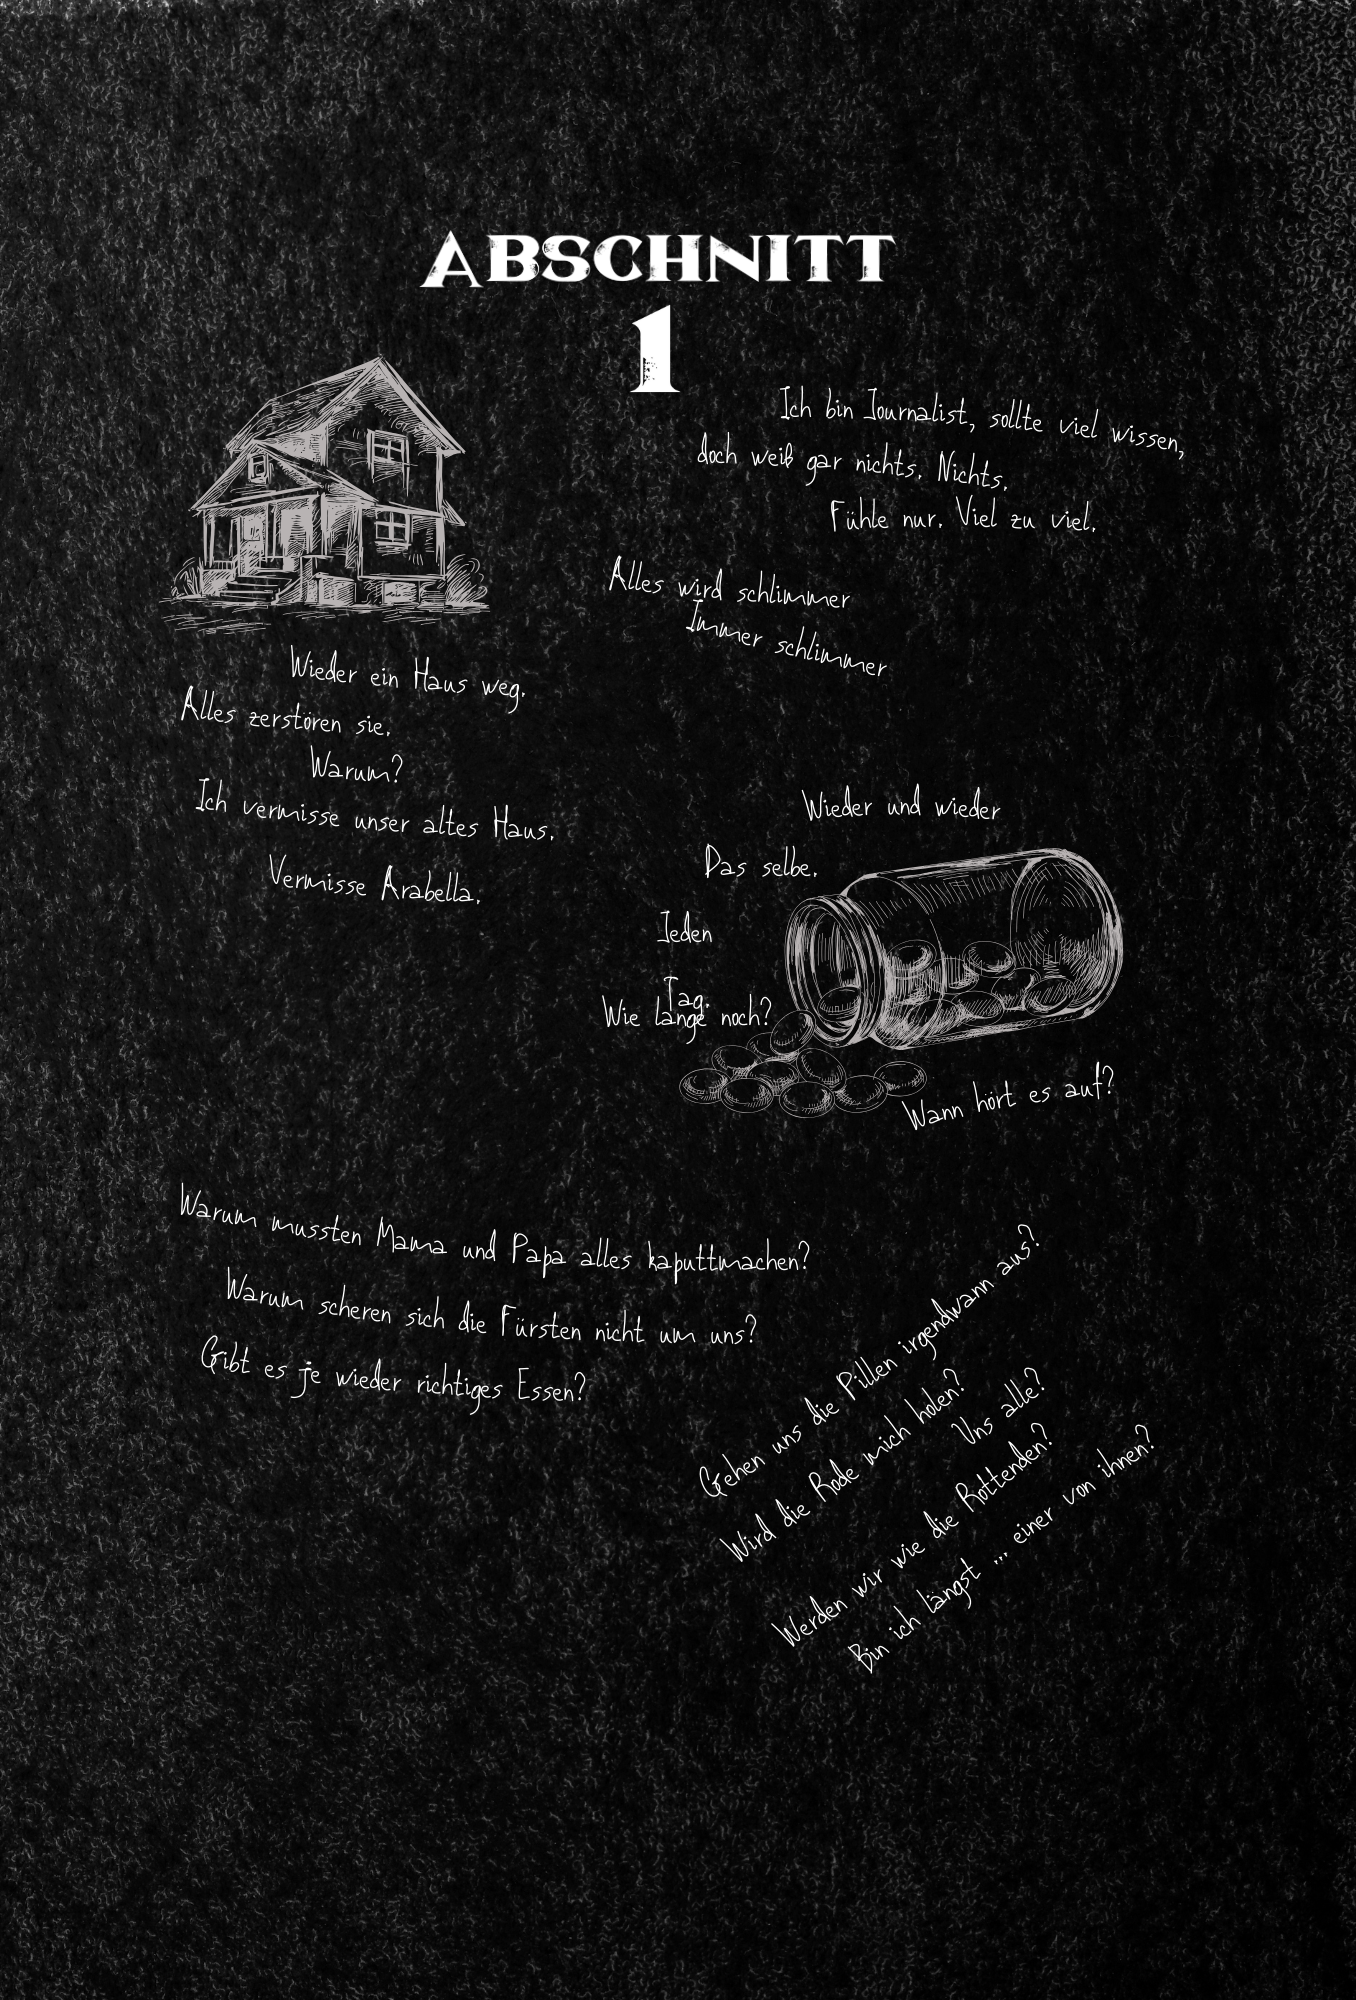 ABSCHNITT
1
Ich bin Journalist, sollte viel wissen,
doch weiß gar nichts. Nichts.
Fühle nur. Viel zu viel.
Alles wird schlimmer
Immer schlimmer
Wieder ein Haus weg.
Alles zerstören sie.
Warum?
Ich vermisse unser altes Haus.
Vermisse Arabella.
Wieder und wieder
Das selbe.
Jeden
Tag.
Wie lange noch?
Wann hört es auf?
Warum mussten Mama und Papa alles kaputtmachen?
Warum scheren sich die Fürsten nicht um uns?
Gibt es je wieder richtiges Essen?
Gehen uns die Pillen irgendwann aus?
Wird die Rode mich holen?
Uns alle?
Werden wir wie die Rottenden?
Bin ich längst ... einer von ihnen?